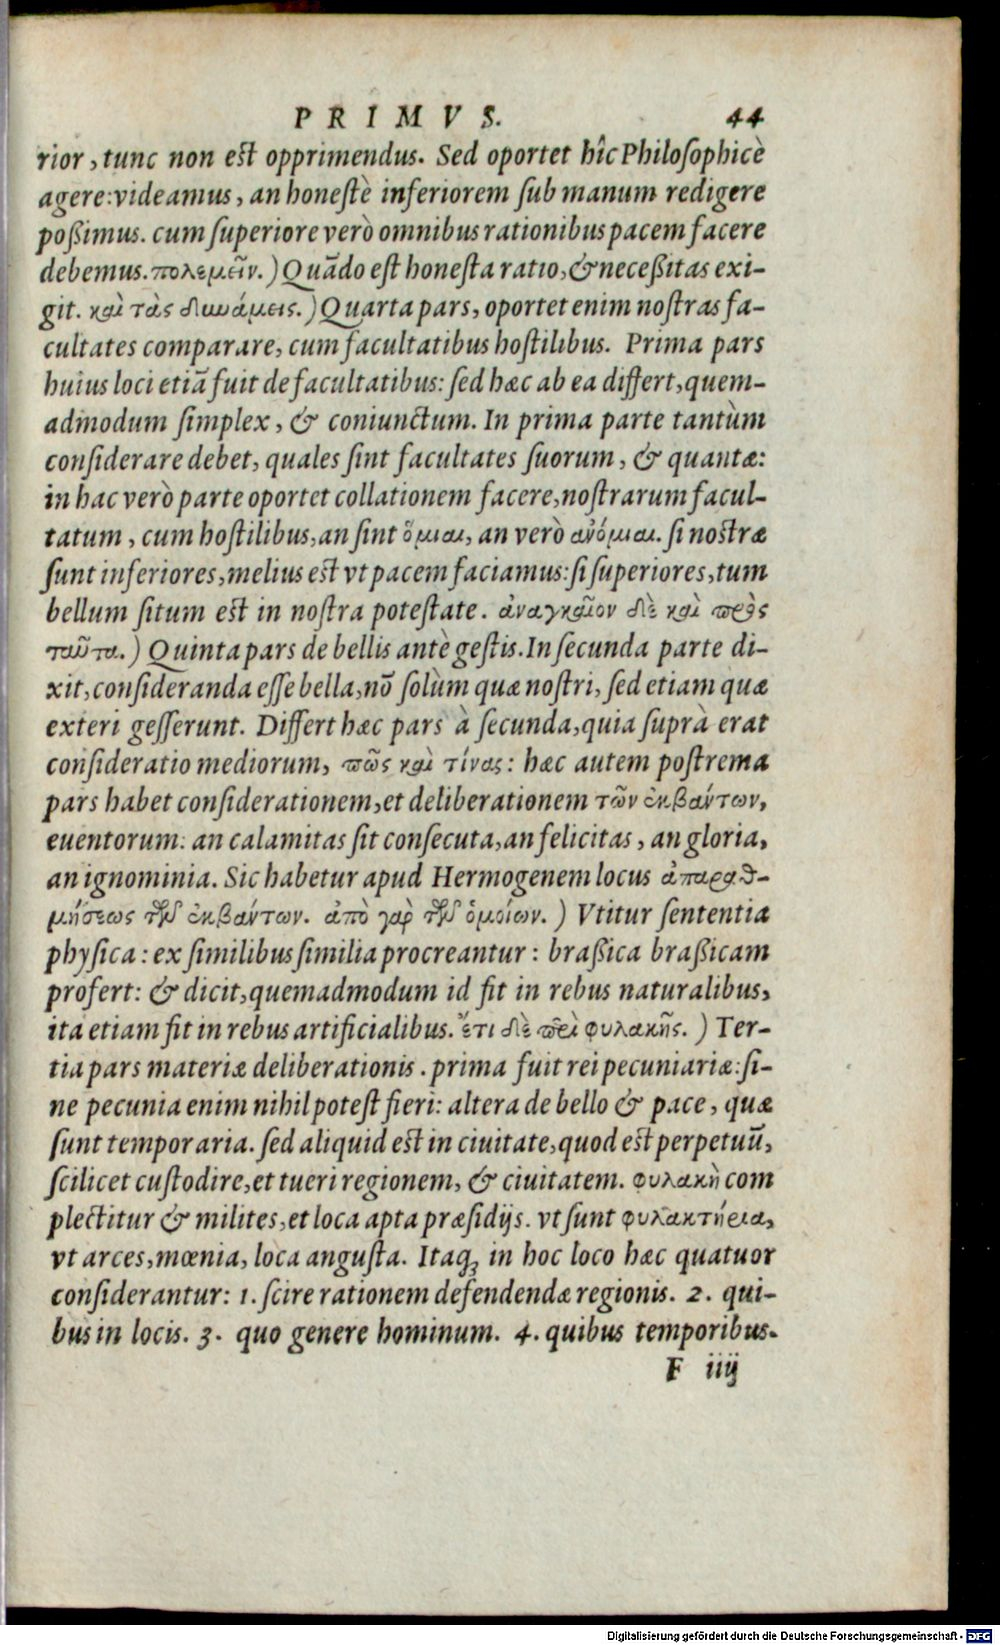 PRIMVS. 44
rior, tunc non est opprimendus. Sed oportet hîc Philosophicè
agere: videamus, an honestè inferiorem sub manum redigere
poßimus. cum superiore verò omnibus rationibus pacem facere
debemus. πολεμεῖν.) Quãdo est honesta ratio, & neceßitas exi-
git. καὶ τὰς δυνάμεις.) Quarta pars, oportet enim nostras fa-
cultates comparare, cum facultatibus hostilibus. Prima pars
huius loci etiã fuit de facultatibus: sed hæc ab ea differt, quem-
admodum simplex, & coniunctum. In prima parte tantùm
considerare debet, quales sint facultates suorum, & quantæ:
in hac verò parte oportet collationem facere, nostrarum facul-
tatum, cum hostilibus, an sint ὅμιαι, an verò ἀνόμιαι. si nostræ
sunt inferiores, melius est vt pacem faciamus: si superiores, tum
bellum situm est in nostra potestate. ἀναγκαῖον δὲ καὶ πρὸς
ταῦτα.) Quinta pars de bellis antè gestis. In secunda parte di-
xit, consideranda esse bella, nõ solùm quæ nostri, sed etiam quæ
exteri gesserunt. Differt hæc pars à secunda, quia suprà erat
consideratio mediorum, πῶς καὶ τίνας: hæc autem postrema
pars habet considerationem, et deliberationem τῶν ἐκβάντων,
euentorum: an calamitas sit consecuta, an felicitas, an gloria,
an ignominia. Sic habetur apud Hermogenem locus ἀπαριθ-
μήσεως τῶν ἐκβάντων. ἀπὸ γὰρ τῶν ὁμοίων.) Vtitur sententia
physica: ex similibus similia procreantur: braßica braßicam
profert: & dicit, quemadmodum id fit in rebus naturalibus,
ita etiam fit in rebus artificialibus. ἔτι δὲ περὶ φυλακῆς.) Ter-
tia pars materiæ deliberationis. prima fuit rei pecuniariæ: si-
ne pecunia enim nihil potest fieri: altera de bello & pace, quæ
sunt temporaria. sed aliquid est in ciuitate, quod est perpetuũ,
scilicet custodire, et tueri regionem, & ciuitatem. φυλακὴ com
plectitur & milites, et loca apta præsidijs. vt sunt φυλακτήρια,
vt arces, mœnia, loca angusta. Itaq; in hoc loco hæc quatuor
considerantur: 1. scire rationem defendendæ regionis. 2. qui-
bus in locis. 3. quo genere hominum. 4. quibus temporibus.
F iiij
Digitalisierung gefördert durch die Deutsche Forschungsgemeinschaft - DFG